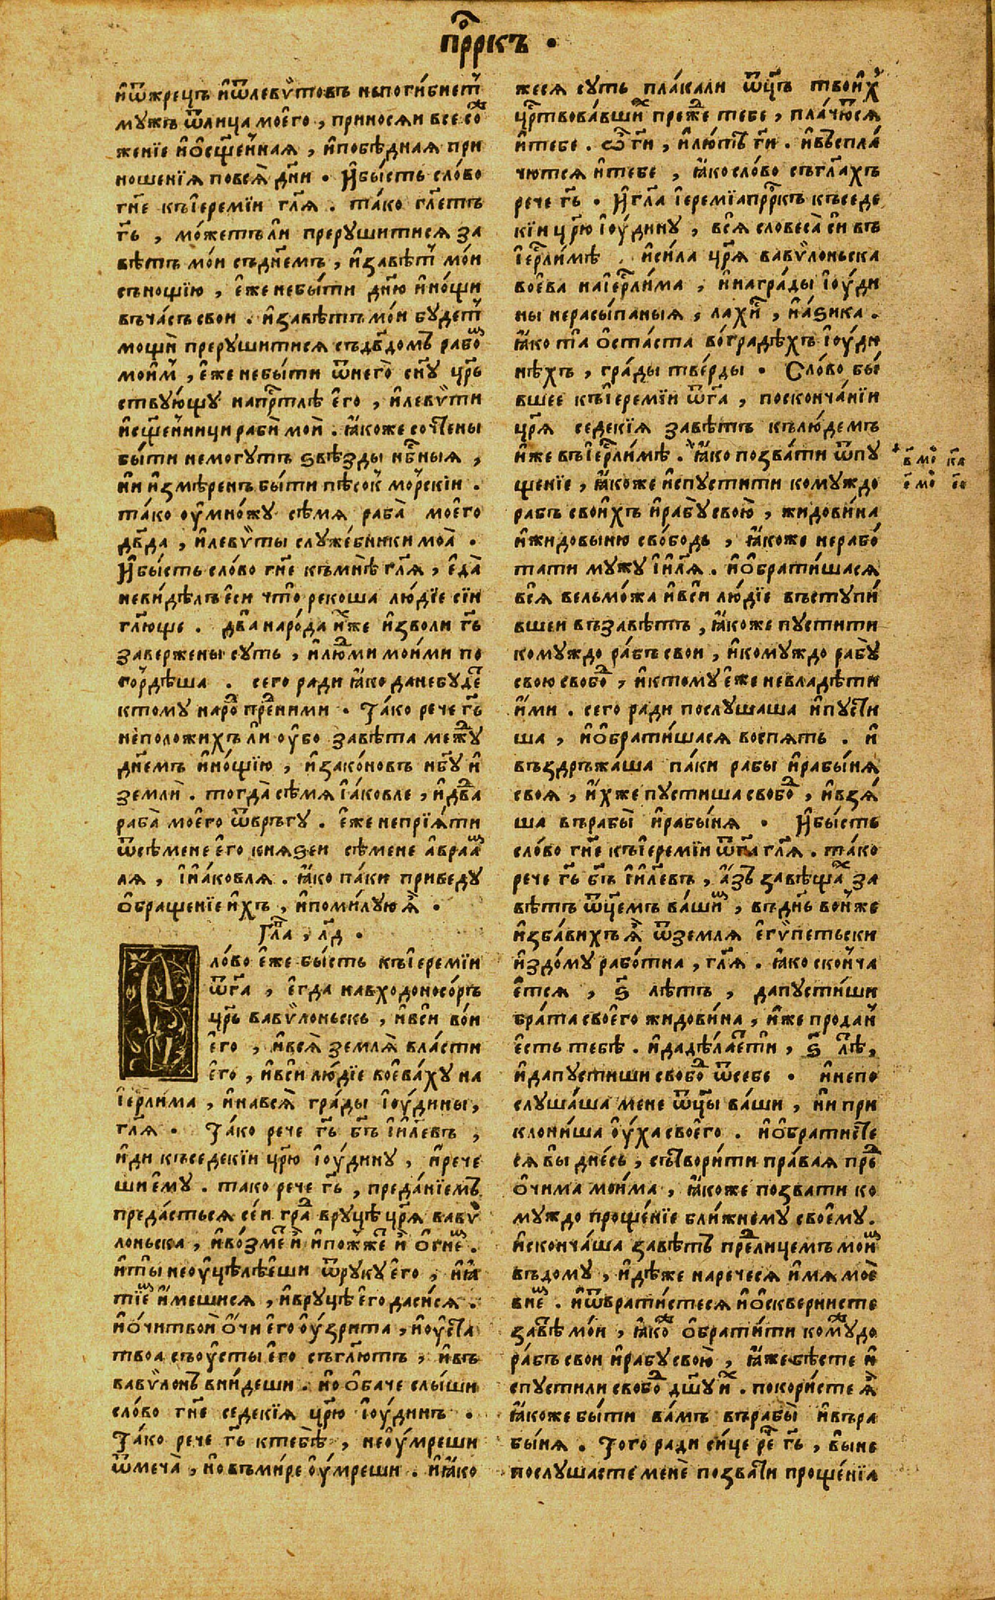 прⷪ҇ркъ ·
иѿжрецъ иѿлевѵ́товъ непоги́бнетⸯ
мужъ ѿлица моего̀ , приносѧи все соⷤ
же́нїе иѻс҃ще́ннаѧ , ипобѣ́днаѧ при
ноше́нїѧ повсѧ̀ дн҃и · Ибы́сть сло́во
гн҃е къіеремі́и гл҃ѧ . та́ко гл҃етъ
гь҃ , мо́жетъли прерушитисѧ за
вѣ́тъ мо́и съднемъ , изавѣ́тⸯ мо́и
съно́щїю , е́же небы́ти дн҃ю ино́щи
въча́съ свои . изавѣ́тъ мо́и буде́тⸯ
мощѐн прерушитисѧ съдв҃домъ рабоⷨ
мои́мⸯ , е́же небы́ти ѿнего̀ сн҃у цр҃ь
ствую́щу напрⷭ҇тлѣ его̀ , илевѵ́ти
исщ҃е́нници раби̇̀ мои̇̀ . ꙗ́коже сочте́ны
бы́ти немогутъ ѕвѣ́зды нб҃ныѧ ,
ни измѣ́ренъ бы́ти пѣсокⸯ мо́рскїи .
та́ко ѹмно́жу сѣ́мѧ раба̀ моего̀
дв҃да , илевѵ́ты служе́бники моѧ̀ .
Ибы́сть сло́во гн҃е къмнѣ̀ гл҃ѧ , еда̀
неви́дѣлъ еси что̀ рекоша лю́дїе сїи
гл҃юще . два̀ наро́да и́хже изволи гь҃
заве́ржены суть , илюⷣми мои́ми по
го́рдѣша . сего ра́ди ꙗ́ко данебу́деⷮ
ктому наро́ⷣ преⷣни́ми · Та́ко рече гь҃
неположи́хъ ли ѹ́бо завѣ́та межⷣу
дн҃емъ ино́щїю , изако́новъ нб҃у и
земли . тогда̀ сѣ́мѧ іа́ковле , идв҃да
раба̀ моего̀ ѿвръгу . е́же непрїѧ́ти
ѿсѣ́мене его кнѧѕеи сѣ́мене авраⷨ
лѧ , іиа́ковлѧ . ꙗ́ко па́ки приведу
ѻбраще́нїе и́хъ , ипоми́луюꙗ̀ .
Гла̀ , л҃д ·
Сло́во е́же бы́сть къіеремі́и
ѿгⷭ҇а , егда навходоносо́ръ
цр҃ь вавѵло́ньскъ , ивси во́и
его̀ , ивсѧ̀ землѧ̀ вла́сти
его̀ , ивси лю́дїе воева́ху на
іерⷭ҇ли́ма , инавсѧ̀ гра́ды іѹ́дины ,
гл҃ѧ · Та́ко рече гь҃ бг҃ъ іи҃левъ ,
иди къседекїи цр҃ю іѹ́дину , ирече
шиему̀ . тако рече гь҃ , преда́нїемъ
преда́стьсѧ се́и гра́ⷣ вруцѣ̀ цр҃ѧ вавѵ
лоньска , ивозме́тⸯ и̇̀ ипожже́тⸯ и̇̀ огне́ⷨ .
ити̇̀ неѹцѣлѣ́еши ѿрукуего̀ , ииꙗ
тїеⷨ и́мешисѧ , ивруцѣ̀ его даси́сѧ .
иѻчи̇̀твои̇̀ ѻчи̇̀ его̀ ѹ́зрита , иѹста̀
твоа̀ съѹ́сты его̀ съгл҃ютъ , ивъ
вавѵло́нъ вни́деши . но ѻ́баче слы́ши
сло́во гн҃е седекїѧ цр҃ю іѹдинъ .
Та́ко рече гь҃ ктебѣ̀ , неѹ́мреши
ѿмеча̀ , но въми́ре ѹмреши . иꙗ́ко
жесѧ суть пла́кали ѿц҃ъ твои́хⸯ
црⷭ҇твова́вшиⷯ пре́жⷣе тебе , пла́чютсѧ
итебе . ѽгн҃и , илю́тѣ гн҃и . ивъспла́
чютсѧ итебе , ꙗ́ко сло́во съгл҃ахъ
рече гь҃ . Игл҃а іеремі́апрⷪ҇ркъ къседе
кїи цр҃ю іѹ́дину , всѧ словеса̀ си въ
іерⷭ҇ли́мѣ . иси́ла цр҃ѧ вавѵло́ньска
воева наіерⷭ҇ли́ма , инагра́ды іѹ́ди
ны нерасы́паныѧ , лахи́сⷭ , иа́ѕика .
ꙗ́ко та̀ ѻста́ста во́градѣхъ іѹ́ди
нѣхъ , гра́ды тве́рды · Сло́во бы́
вшее къіеремі́и ѿгⷭ҇а , посконча́нїи
цр҃ѧ седекїѧ завѣ́тъ кълю́демъ
и́же въіерⷭ҇ли́мѣ . ꙗ́ко позва́ти ѿпу
щенїе , ꙗ́коже испустити кому́ждо
рабъ своихъ ирабу своѐю , жидови́на
ижидовы́ню сво́бодь , ꙗ́коже нерабо́
тати мужу ії҃лѧ . иѻбрати́шасѧ
всѧ вельмо́жа ивси лю́дїе въступи́
вшеи възавѣ́тъ , ꙗ́коже пустити
кому́ждо ра́бъ свои , икому́ждо рабу̀
свою свобоⷣ , иктому̀ е́же невладѣ́ти
и́ми . сего ра́ди послушаша ипусти
ша , иѻбрати́шасѧ воспѧть . и
въздръжа́ша па́ки рабы̀ ирабы́нѧ
своѧ , и́хже пустиша свобоⷣ , ивзѧ́
ша врабы̀ ирабы́нѧ · Ибы́сть
сло́во гн҃е къіеремі́и ѿгⷭ҇а гл҃ѧ . та́ко
рече гь҃ бг҃ъ іи҃левъ , а́зъ завѣща́ⷯ за
вѣ́тъ ѿц҃емъ ва́шиⷨ , въдн҃ь во́ньже
изба́вихъꙗ̀ ѿземлѧ егѵ́петьски
издо́му рабо́тна , гл҃ѧ . ꙗ́ко сконча
етсѧ , ѕ҃ лѣ́тъ , дапустиши
бра́та своего жидови́на , и́же прода́н
есть тебѣ̀ . идадѣ́лаетти , ѕ҃ лѣ́тⷮ ,
идапустиши свобоⷣ ѿсебе · инепо
слу́шаша мене ѿц҃ы ва́ши , ни при
клони́ша ѹ́ха своего . иѻбрати́сте
сѧ вы дне́сь , сътвори́ти пра́ваѧ преⷣ
ѻчи́ма мои́ма , ꙗ́коже позва́ти ко
му́ждо проще́нїе бли́жнему своему .
исконча́ша завѣ́тъ преⷣлицемъ мои́ⷨ
въдому , идѣ́же наречесѧ и́мѧ моѐ
вне́ⷨ . иѿврати́стесѧ иѻскверни́сте
завѣ́тъ мо́и , ꙗ́ко ѻбрати́ти комꙋⷤдо
ра́бъ свои ирабу свою̀ , ꙗ́же бѣ́сте и
спустили свобоⷣ дш҃у иⷯ . покори́сте ꙗ̀
ꙗ́коже бы́ти ва́мъ врабы̀ ивъра
бы́нѧ . Того ра́ди си́це реⷱ гь҃ , вы не
послушасте менѐ позва́ти проще́нїѧ